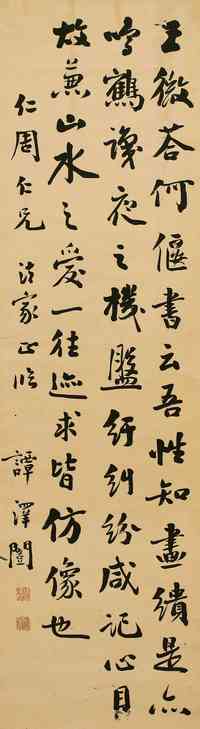 王微荅何偃書云吾性知畫繢是亦
鳴鶴識夜之機盤紆糾紛咸記心目
故兼山水之愛一往迹求皆仿像也
仁周仁兄 法家正臨
譚澤闓